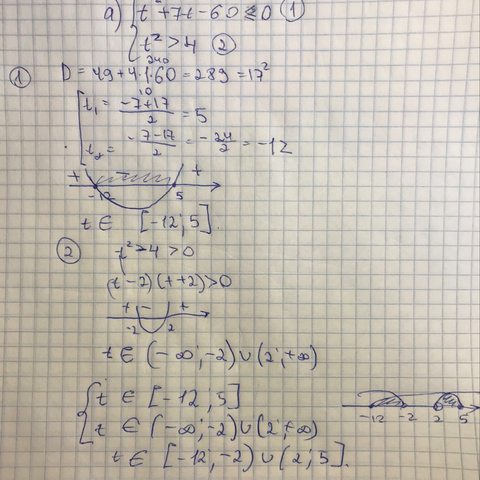 а) { t² + 7t - 60 ≤ 0 ①
t² > 4 ②
① D = 49 + 4·1·60 = 289 = 17²
240
[ t₁ = (-7+17)/2 = 5
10
t₂ = (-7-17)/2 = -24/2 = -12
+ - +
-12 5
t ∈ [-12; 5].
② t² - 4 > 0
(t - 2)(t + 2) > 0
+ - +
-2 2
t ∈ (-∞; -2) ∪ (2; +∞)
{ t ∈ [-12; 5]
t ∈ (-∞; -2) ∪ (2; +∞)
-12 -2 2 5
t ∈ [-12; -2) ∪ (2; 5].